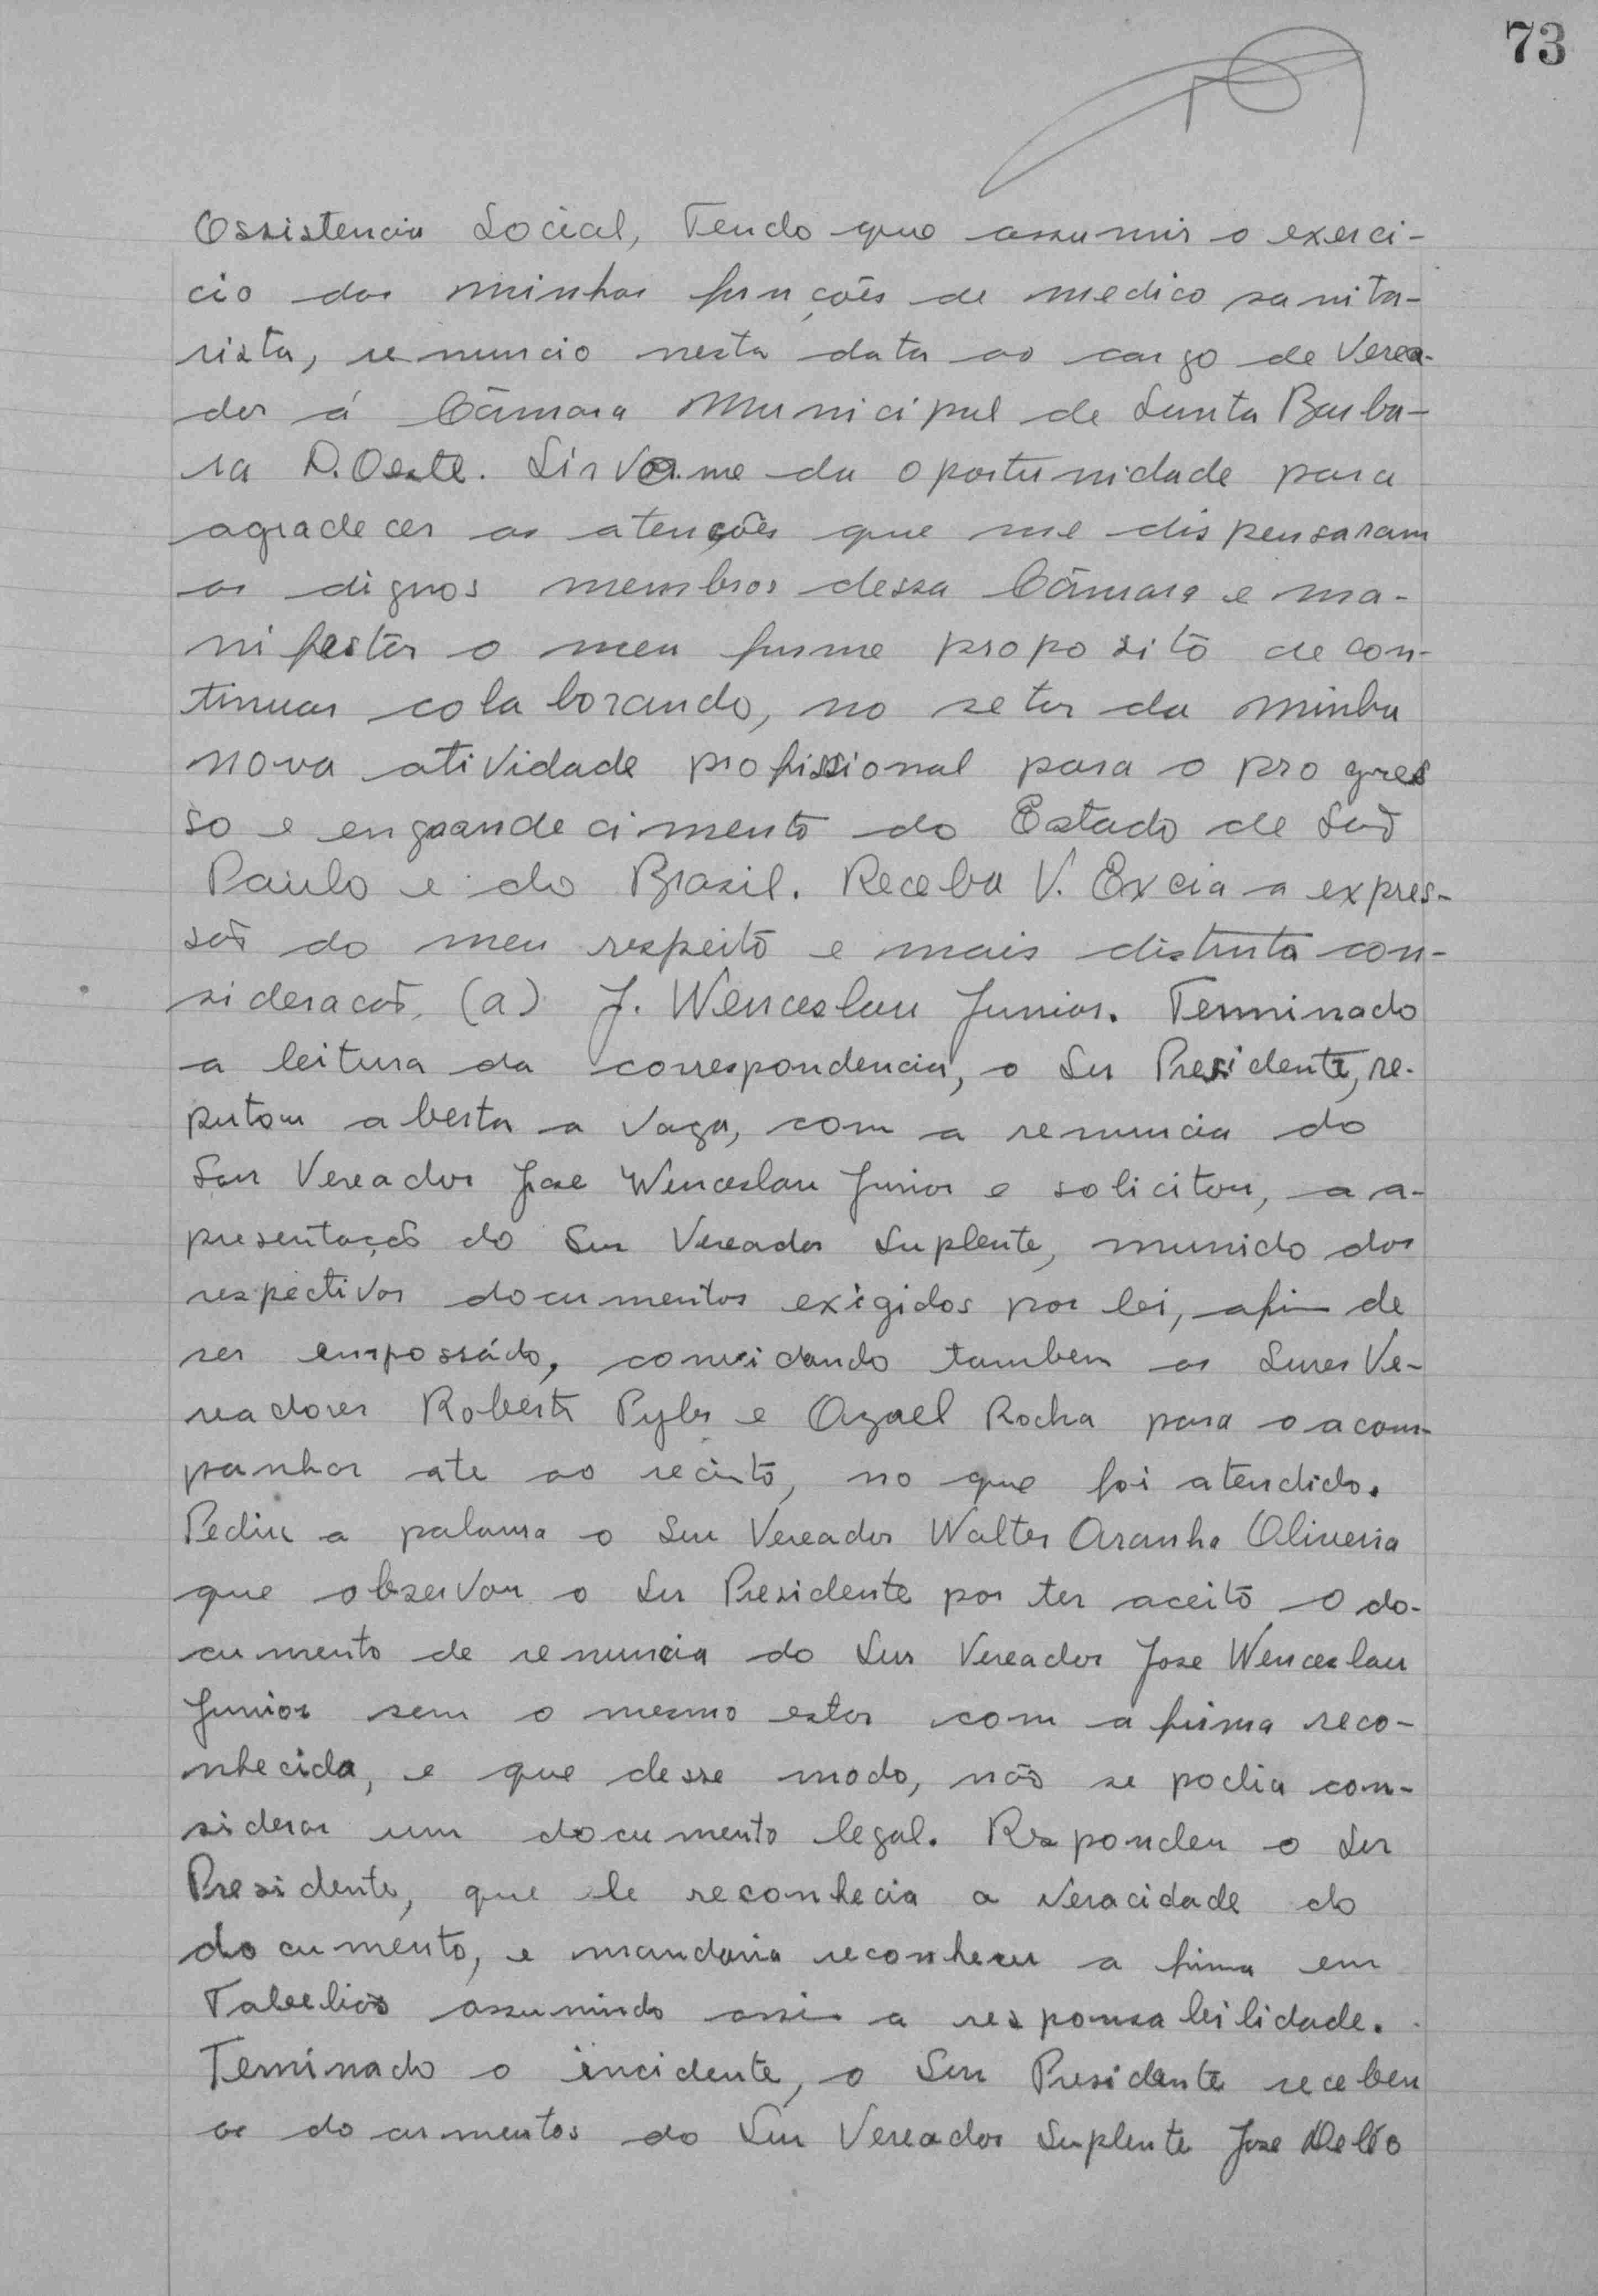 73
Assistencia Social, Tendo que assumir o exerci-
cio das minhas funções de medico sanita-
rista, renuncio nesta data ao cargo de Verea-
dor á Câmara Municipal de Santa Barba-
ra D.Oeste. Sirvo.me da oportunidade para
agradecer as atenções que me dispensaram
os dignos membros dessa Câmara e ma-
nifestar o meu firme proposito de con-
tinuar colaborando, no setor da minha
nova atividade profissional para o progres
so e engrandecimento do Estado de São
Paulo e do Brasil. Receba V. Excia a expres-
são do meu respeito e mais distinta con-
sideracão, (a) J. Wenceslau Junior. Terminado
a leitura da correspondencia, o Snr Presidente, re-
putou aberta a vaga, com a renuncia do
Snr Vereador Jose Wenceslau Junior e solicitou, a a-
presentação do Snr Vereador Suplente, munido dos
respectivos documentos exigidos por lei, afim de
ser empossádo, convidando tambem os Snres Ve-
readores Roberto Pyles e Azael Rocha para o acom-
panhar ate ao recinto, no que foi atendido.
Pediu a palavra o Snr Vereador Walter Aranha Oliveria
que observou o Snr Presidente por ter aceito o do-
cumento de renuncia do Snr Vereador Jose Wenceslau
Junior sem o mesmo estar com a firma reco-
nhecida, e que desse modo, não se podia con-
siderar um documento legal. Respondeu o Snr
Presidente, que ele reconhecia a veracidade do
documento, e mandaria reconhecer a firma em
Tabelião assumindo assim a responsabilidade.
Terminado o incidente, o Snr Presidente recebeu
os documentos do Snr Vereador Suplente Jose